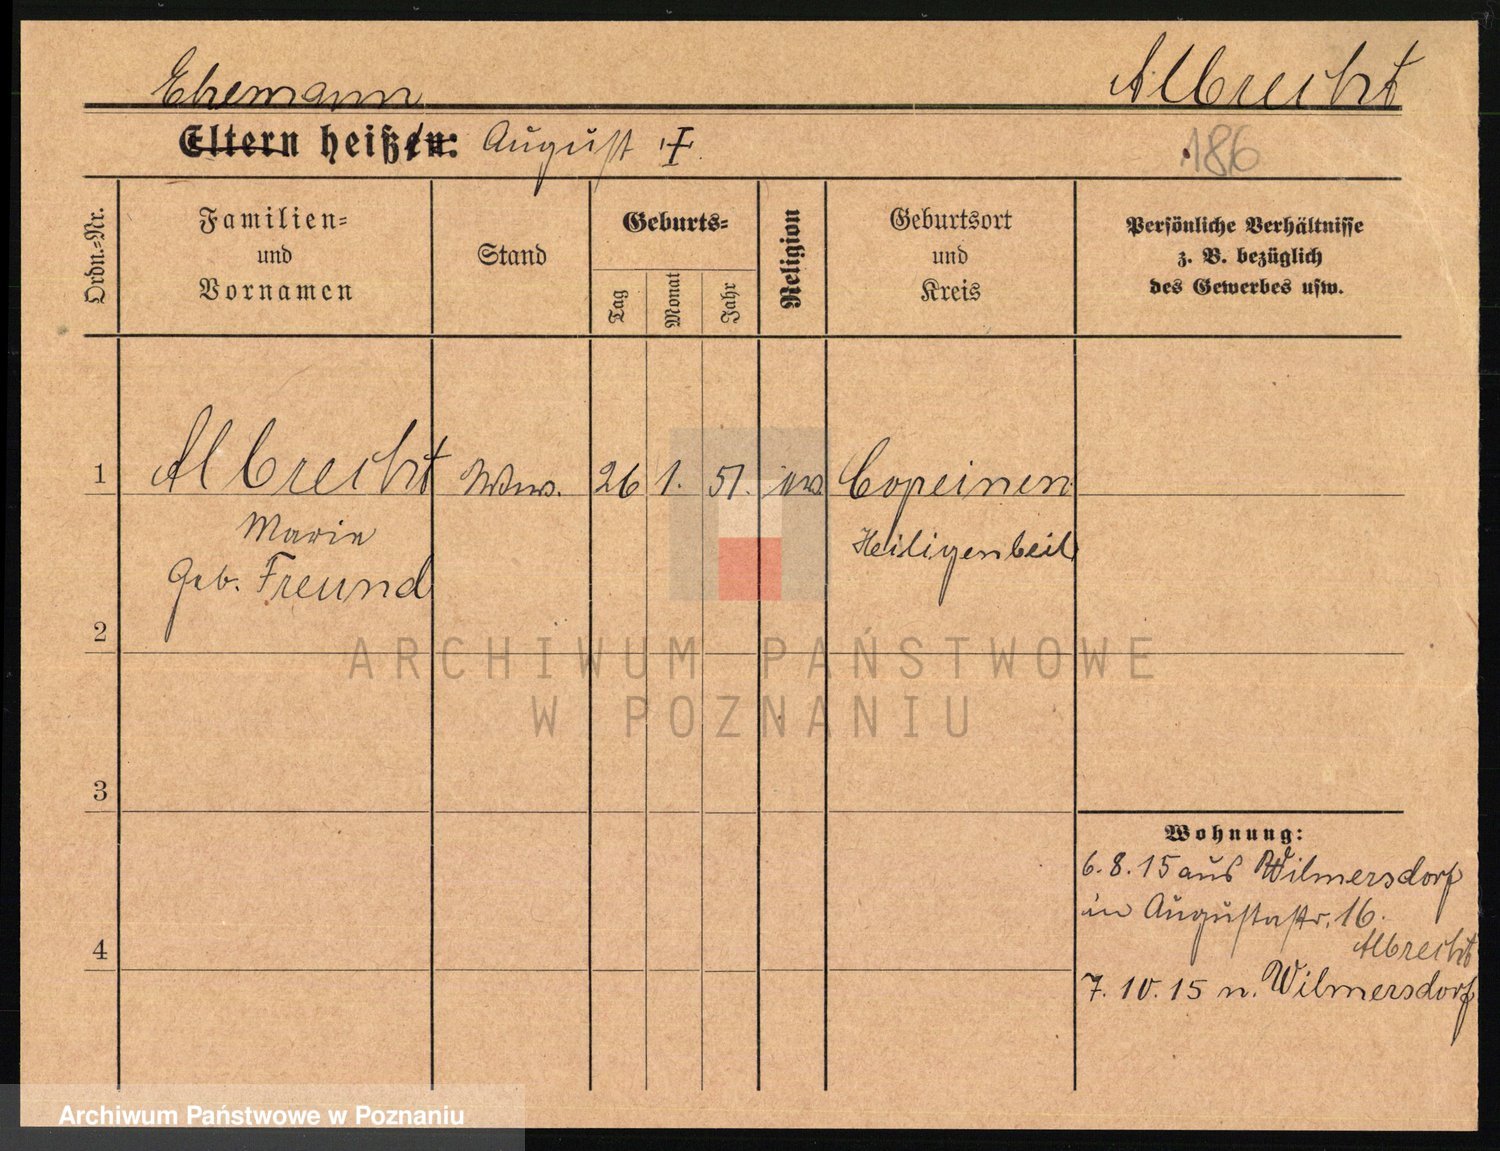 Ehemann
Albrecht
Eltern heißen: August †.
186
Ordn.-Nr.
Familien-
und
Vornamen
Stand
Geburts-
Tag
Monat
Jahr
Religion
Geburtsort
und
Kreis
Persönliche Verhältnisse
z. B. bezüglich
des Gewerbes usw.
1
Albrecht
Wwe.
26
1.
51.
Copeinen
Marie
Heiligenbeil
geb. Freund
2
ARCHIWUM PAŃSTWOWE
W POZNANIU
3
Wohnung:
6.8.15 aus Wilmersdorf
in Augustastr. 16.
Albrecht
4
7.10.15 n. Wilmersdorf
Archiwum Państwowe w Poznaniu